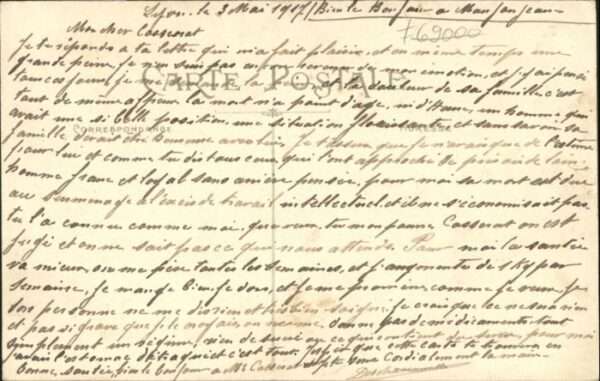 Lyon, le 3 Mai 1917 / Bien le Bonjour a Mon Jean
F 69000
Mon cher Cosserat
Je te réponds a ta lettre qui m'a fait plaisir, et en même temps une
grande peine, je ne suis pas encore de mon émotion, et j'ai
CARTE POSTALE
la douleur de sa famille c'est
tant de même affreux la mort n'a point d'age, ni d'heure, un homme qui
avait une si belle position, une situation florissante et sans savoir sa
CORRESPONDANCE
ADRESSE
famille devait être heureuse avec lui, je t'assure que je n'avais que de l'estime
pour lui et comme tu dis tous ceux qui l'ont approché de près ou de loin
homme franc et loyal sans arrière pensée, pour moi sa mort est due
au surmenage a l'excès de travail intellectuel, et il ne s'économisait pas
tu l'a connu comme moi, que veux tu mon pauvre Cosserat on est
et on ne sait pas ce qui nous attend. Pour moi la santé
va mieux, on me pèse toutes les semaines, et j'augmente de 1 Kg par
semaine, je mange bien, je dors, et je me promène comme je veux,
personne ne me dis rien et très bien soigné, je crois que ce ne sera rien
et pas si grave que je croyais, on ne me donne pas de médicaments, tout
simplement un régime, rien de sucré ou ce qui contient du sucre, pour moi
et c'est tout. J'espère que cette carte te trouvera en
bonne santé, bien le bonjour a Me Cosserat et je te serre cordialement la main.